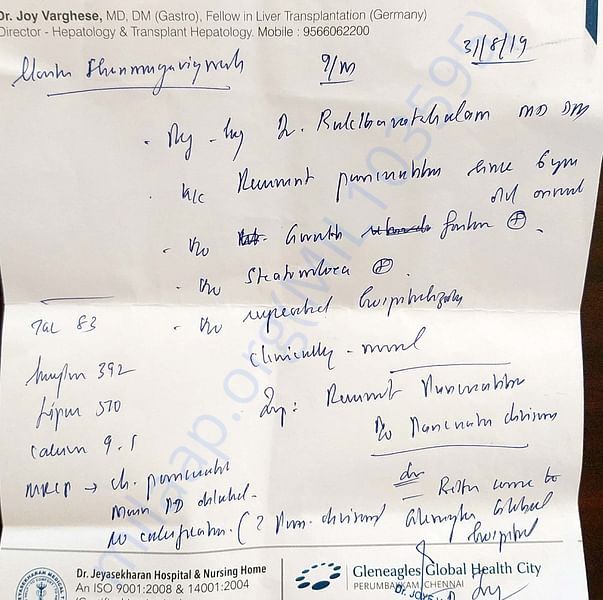 Dr. Joy Varghese, MD, DM (Gastro), Fellow in Liver Transplantation (Germany)
Director - Hepatology & Transplant Hepatology. Mobile : 9566062200
31/8/19
Master Shanmugavignesh 9/m
- by Dr. MD DM
k/c Recurrent pancreatitis since 6 yrs
old
- H/o Growth failure ⊕.
- H/o Steatorrhoea ⊕.
- H/o repeated hospitalization
Clinically - normal
TGL 83
Amylase 392
Lipase 570
Calcium 9.5
MRCP → ch. pancreatitis
Main PD dilated -
No calcification. (? Panc. divisum)
Imp: Recurrent Pancreatitis
Pancreatic divisum
come to
Gleneagles Global
Hospital
millaap.org(MIL 103595)
Dr. Jeyasekharan Hospital & Nursing Home
An ISO 9001:2008 & 14001:2004
Gleneagles Global Health City
PERUMBAKKAM, CHENNAI